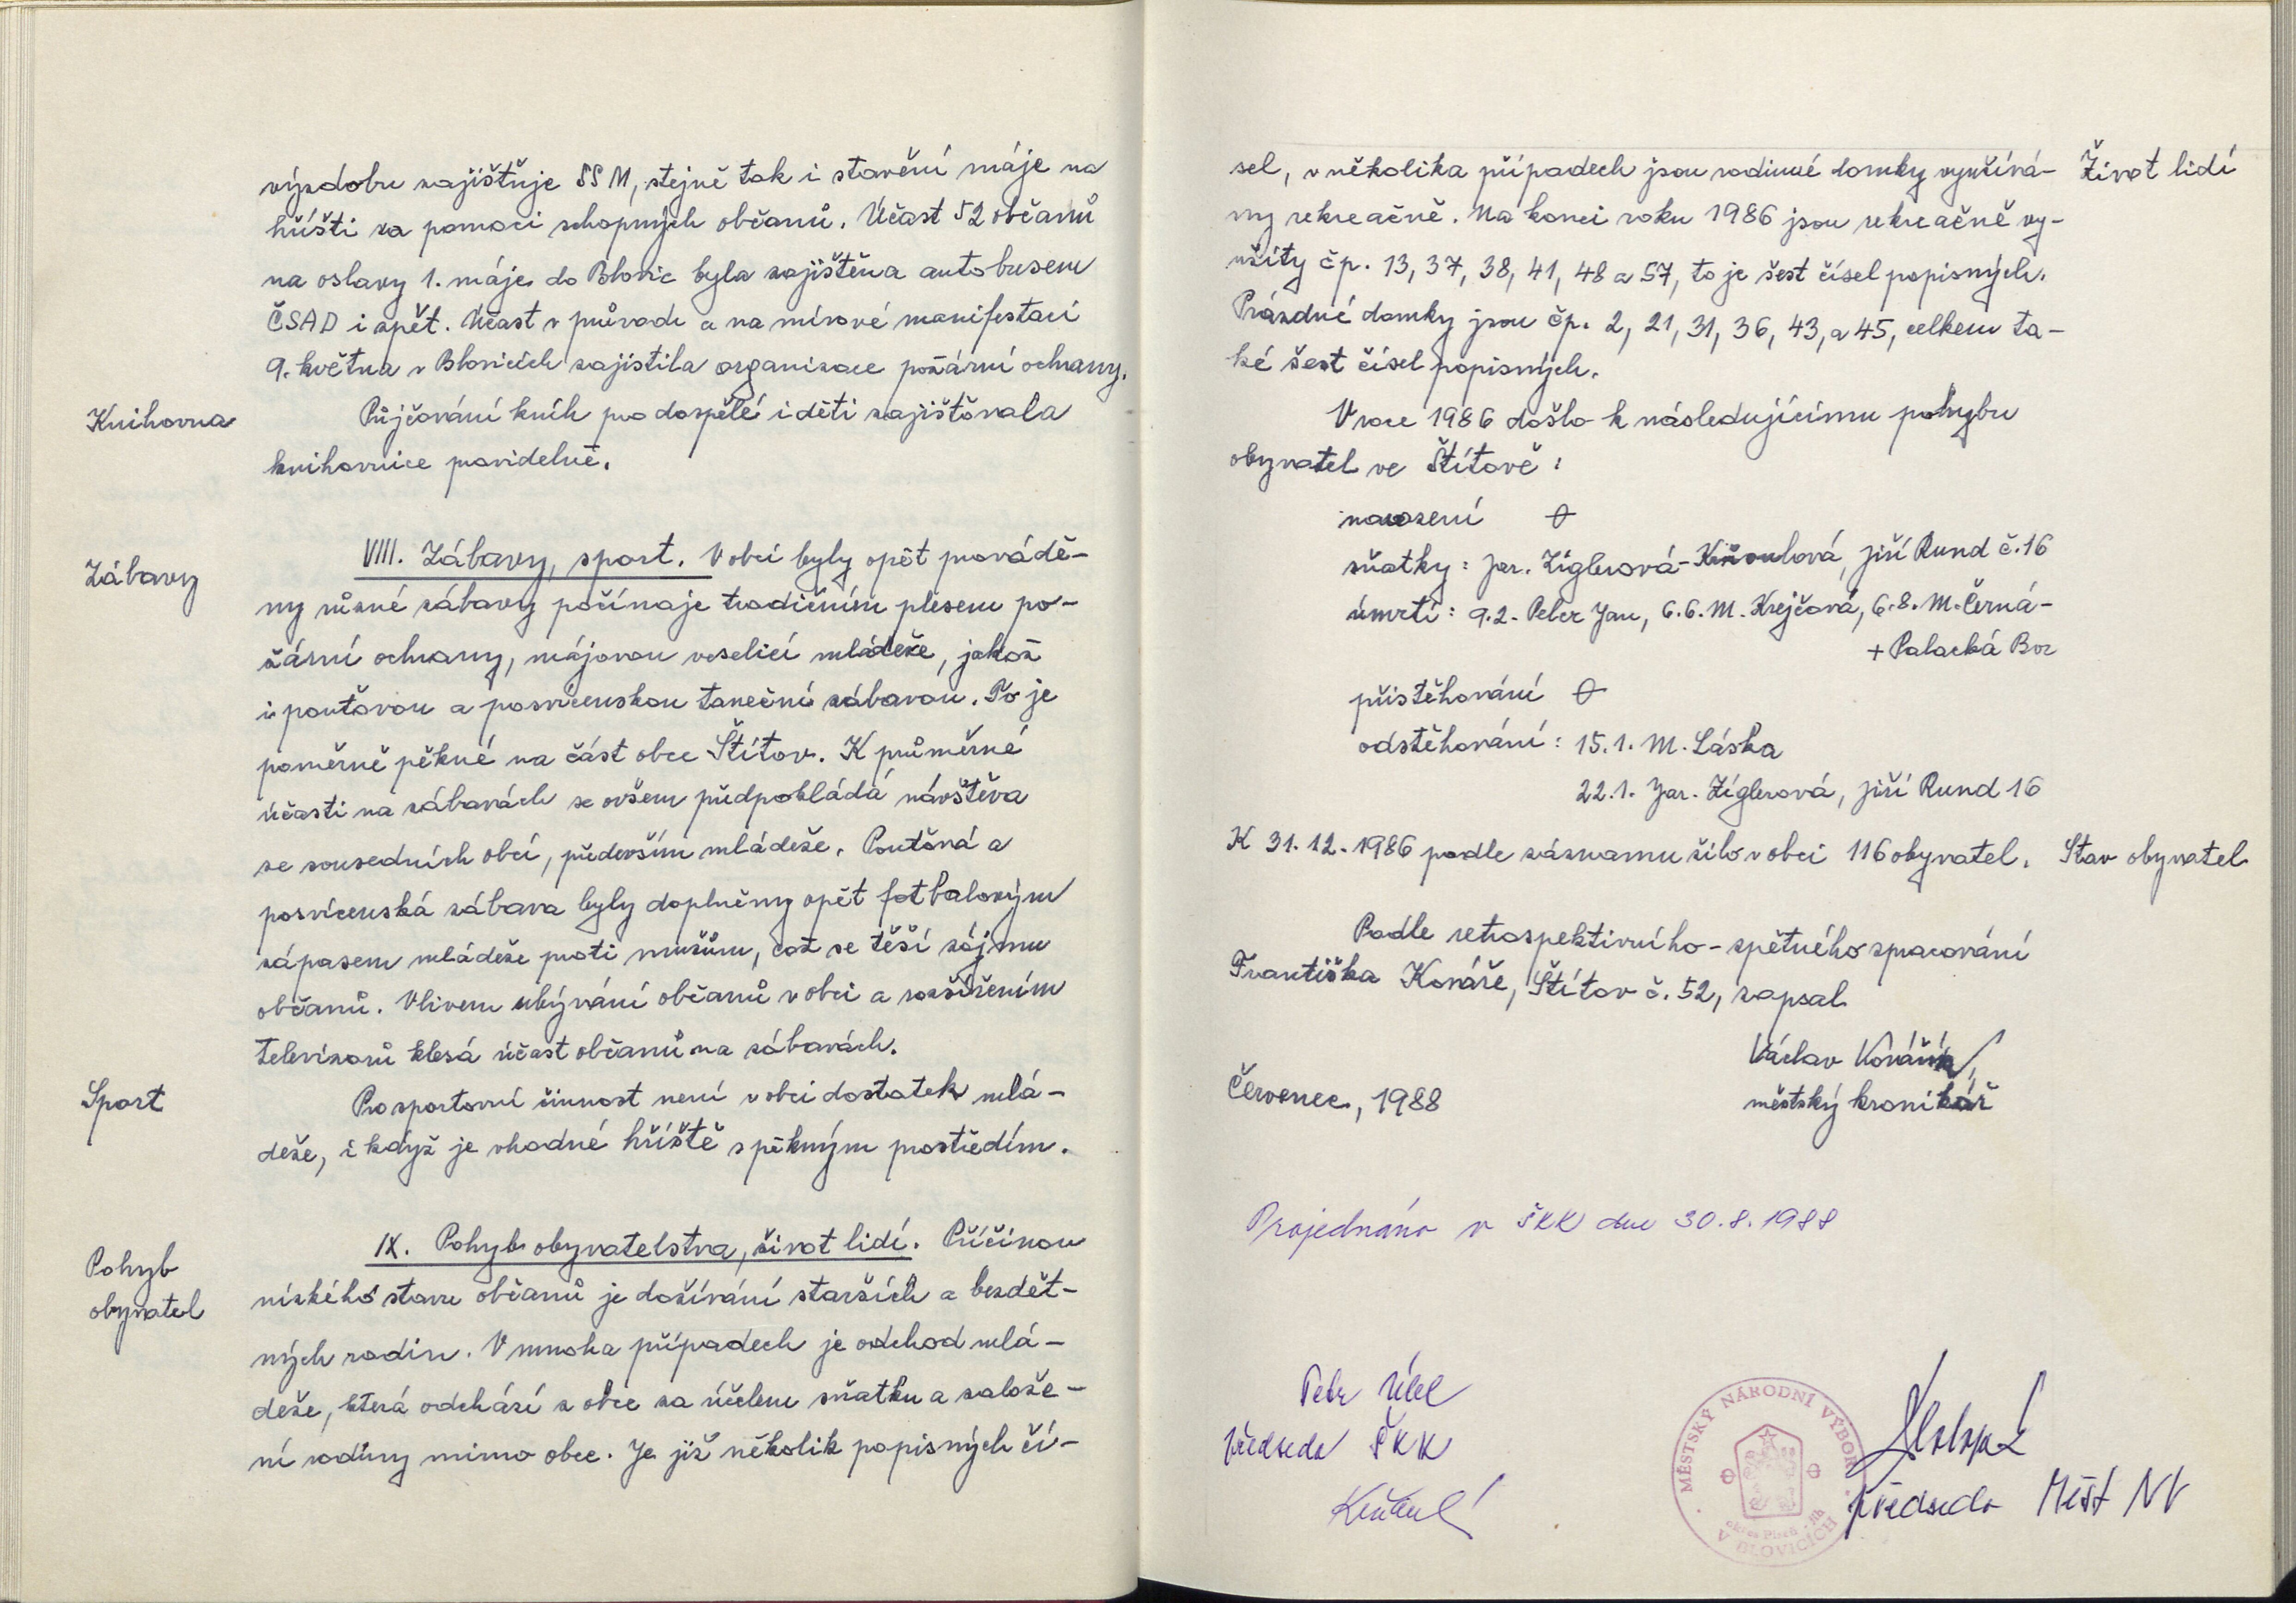 výzdobu zajišťuje SSM, stejně tak i stavění máje na
hřišti za pomoci schopných občanů. Účast 52 občanů
na oslavy 1. máje do Blovic byla zajištěna autobusem
ČSAD i zpět. Účast v průvodu a na mírové manifestaci
9. května v Blovicích zajistila organizace požární ochrany.
Knihovna
Půjčování knih pro dospělé i děti zajišťovala
knihovnice pravidelně.
Zábavy
VIII. Zábavy, sport. V obci byly opět prováдě-
ny různé zábavy počínaje tradičním plesem po-
žární ochrany, májovou veselicí mládeže, jakož
i pouťovou a posvícenskou taneční zábavou. To je
poměrně pěkné na část obce Štítov. K průměrné
účasti na zábavách se ovšem předpokládá návštěva
ze sousedních obcí, především mládeže. Pouťová a
posvícenská zábava byly doplněny opět fotbalovým
zápasem mládeže proti mužům, což se těší zájmu
občanů. Vlivem ubývání občanů v obci a rozšířením
televizorů klesá účast občanů na zábavách.
Sport
Pro sportovní činnost není v obci dostatek mlá-
deže, i když je vhodné hřiště s pěkným prostředím.
Pohyb
obyvatel
IX. Pohyb obyvatelstva, život lidí. Příčinou
nízkého stavu občanů je dožívání starších a bezdět-
ných rodin. V mnoha případech je odchod mlá-
deže, která odchází z obce za účelem sňatku a založe-
ní rodiny mimo obec. Je již několik popisných čí-
sel, v několika případech jsou rodinné domky využívá-
Život lidí
ny rekreačně. Na konci roku 1986 jsou rekreačně vy-
užity čp. 13, 37, 38, 41, 48 a 57, to je šest čísel popisných.
Prázdné domky jsou čp. 2, 21, 31, 36, 43, a 45, celkem ta-
ké šest čísel popisných.
V roce 1986 došlo k následujícímu pohybu
obyvatel ve Štítově:
narození 0
sňatky: Jar. Zíglerová-Křoulová, Jiří Rund č. 16
úmrtí: 9.2. Pelcr Jan, 6.6. M. Krejčová, 6.8. M. Černá-
+ Palacká Bor
přistěhování 0
odstěhování: 15.1. M. Láska
22.1. Jar. Zíglerová, Jiří Rund 16
K 31.12.1986 podle záznamu žilo v obci 116 obyvatel.
Stav obyvatel
Podle retrospektivního - zpětného zpracování
Františka Kováře, Štítov č. 52, zapsal
Václav Kovářík,
Červenec, 1988
městský kronikář
Projednáno v ŠKK dne 30.8.1988
Petr
předseda ŠKK
předseda Měst NV
MĚSTSKÝ NÁRODNÍ VÝBOR
V BLOVICÍCH